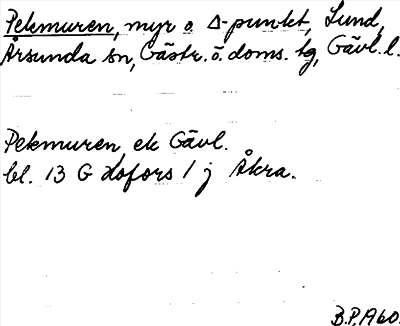 Pelemuren, myr o ∆-punkt, Lund,
Årsunda sn, Gästr. ö. doms. tg, Gävl. l.
Pelemuren ek Gävl.
bl. 13 G Hofors 1 j Åkra.
B.P. 1960.